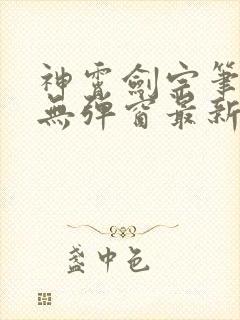 神霄劍宗筆
無彈窗最新
盞中色